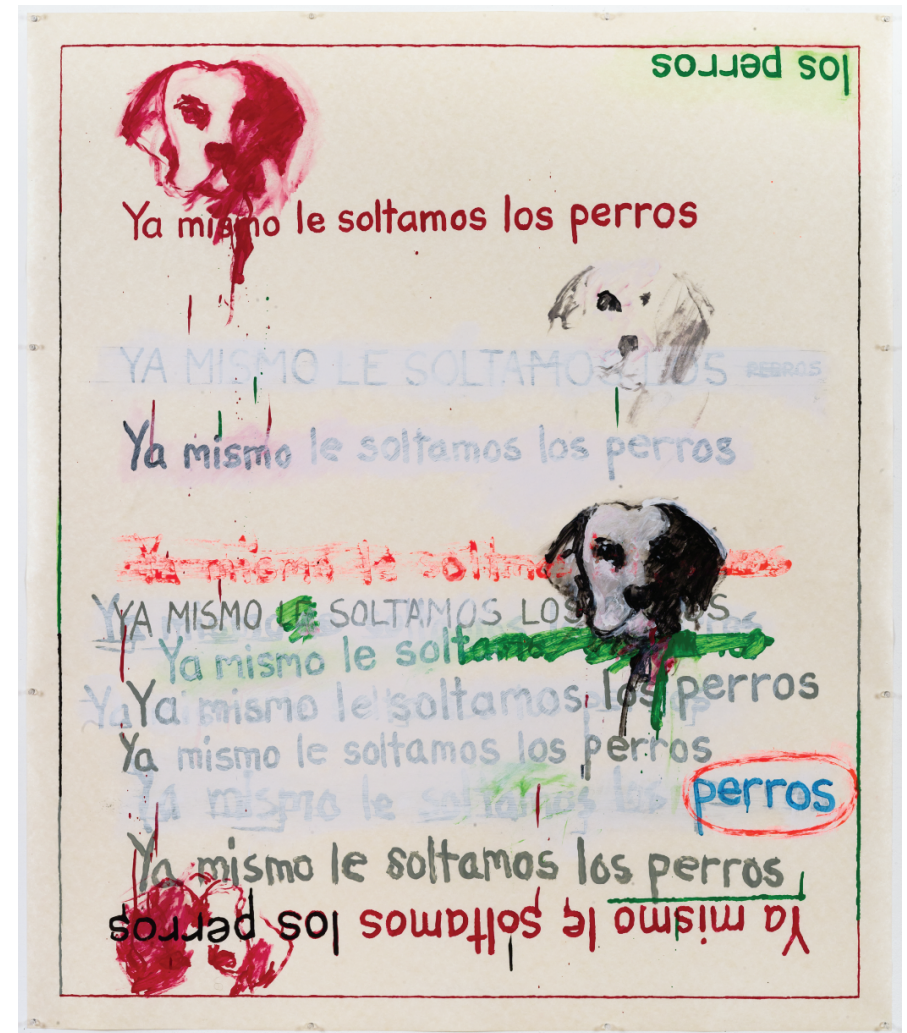 los perros
Ya mismo le soltamos los perros
YA MISMO LE SOLTAMOS LOS PERROS
Ya mismo le soltamos los perros
Ya mismo le
YA MISMO LE SOLTAMOS LOS
Ya mismo le soltamos
Ya mismo le soltamos los perros
Ya mismo le soltamos los perros
Ya le soltamos los perros
Ya mismo le soltamos los perros
Ya mismo le soltamos los perros